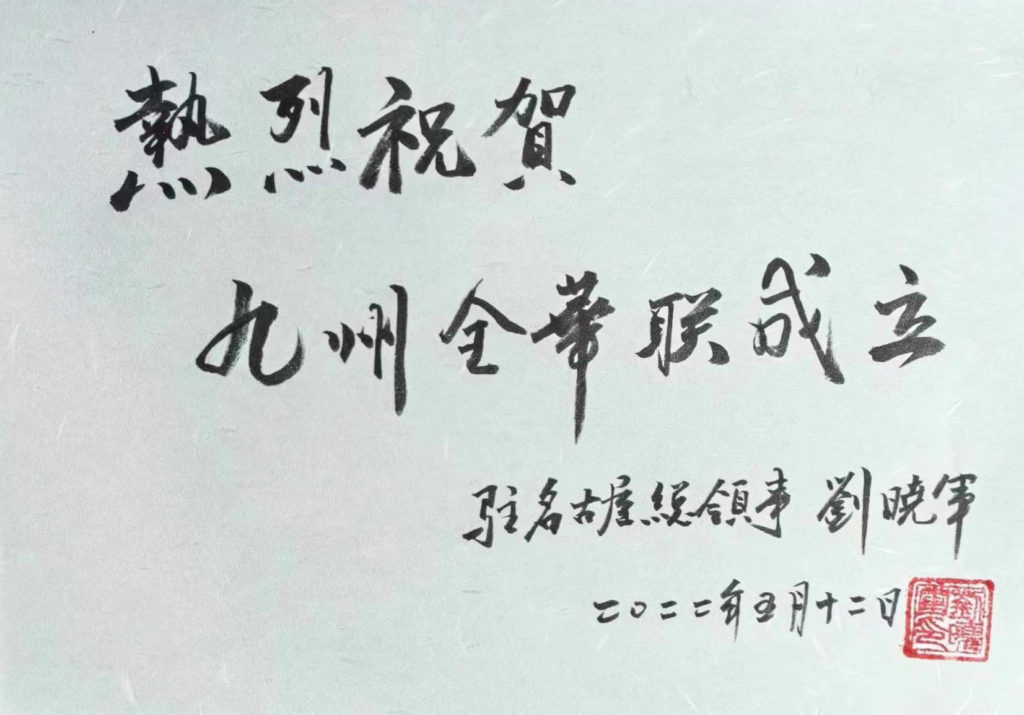 熱烈祝賀
九州全華联成立
驻名古屋総領事 劉曉軍
二〇二二年五月十二日